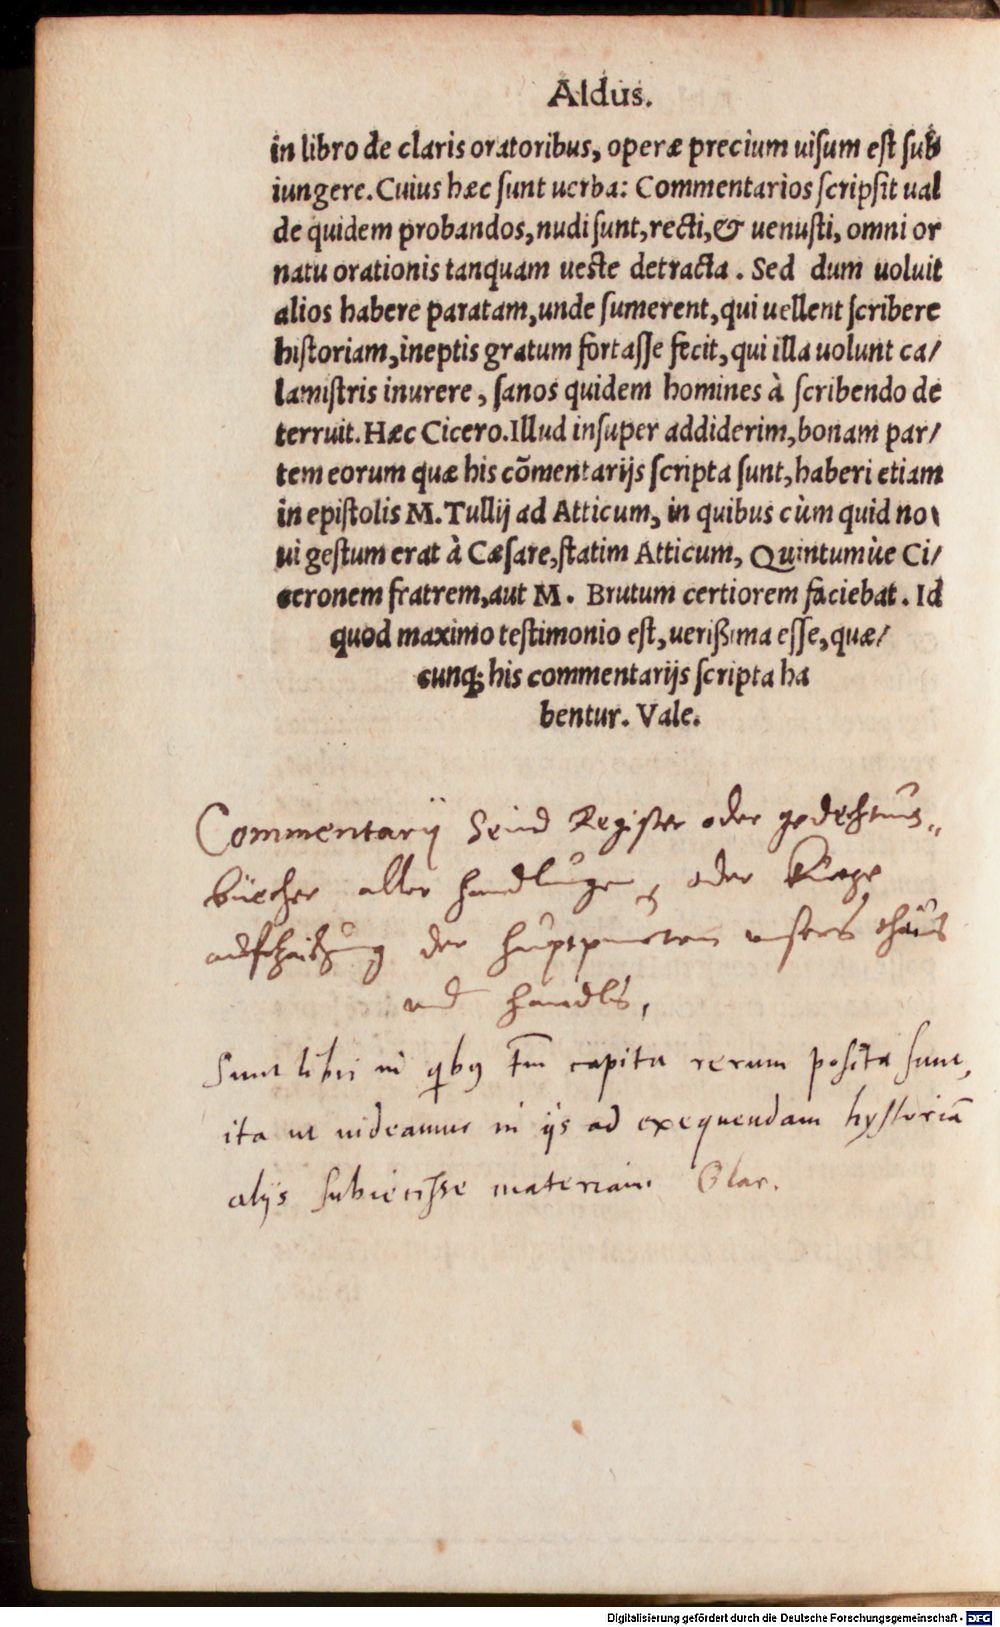 Aldus.
in libro de claris oratoribus, operæ precium uiſum est ſub
iungere. Cuius hæc ſunt uerba: Commentarios ſcripſit ual
de quidem probandos, nudi ſunt, recti, & uenuſti, omni or
natu orationis tanquam ueste detracta. Sed dum uoluit
alios habere paratam, unde ſumerent, qui uellent ſcribere
hiſtoriam, ineptis gratum fortaſſe fecit, qui illa uolunt ca/
lamiſtris inurere, ſanos quidem homines à ſcribendo de
terruit. Hæc Cicero. Illud inſuper addiderim, bonam par/
tem eorum quæ his cõmentarijs ſcripta ſunt, haberi etiam
in epiſtolis M. Tullij ad Atticum, in quibus cùm quid no
ui geſtum erat à Cæſare, ſtatim Atticum, Quintumùe Ci/
ceronem fratrem, aut M. Brutum certiorem faciebat. Id
quod maximo teſtimonio eſt, uerißima eſſe, quæ/
cunq; his commentarijs ſcripta ha
bentur. Vale.
Commentarÿ Seind Register oder gedechtnus„
büecher aller handlungen, oder Kurze
der hauptpuncten unsers thuns
und handls,
Sunt libri in qbꝫ tm̄ capita rerum posita sunt,
ita ut uideamur in ijs ad exequendam hystoriā
alijs subiecisse materiam Glar.